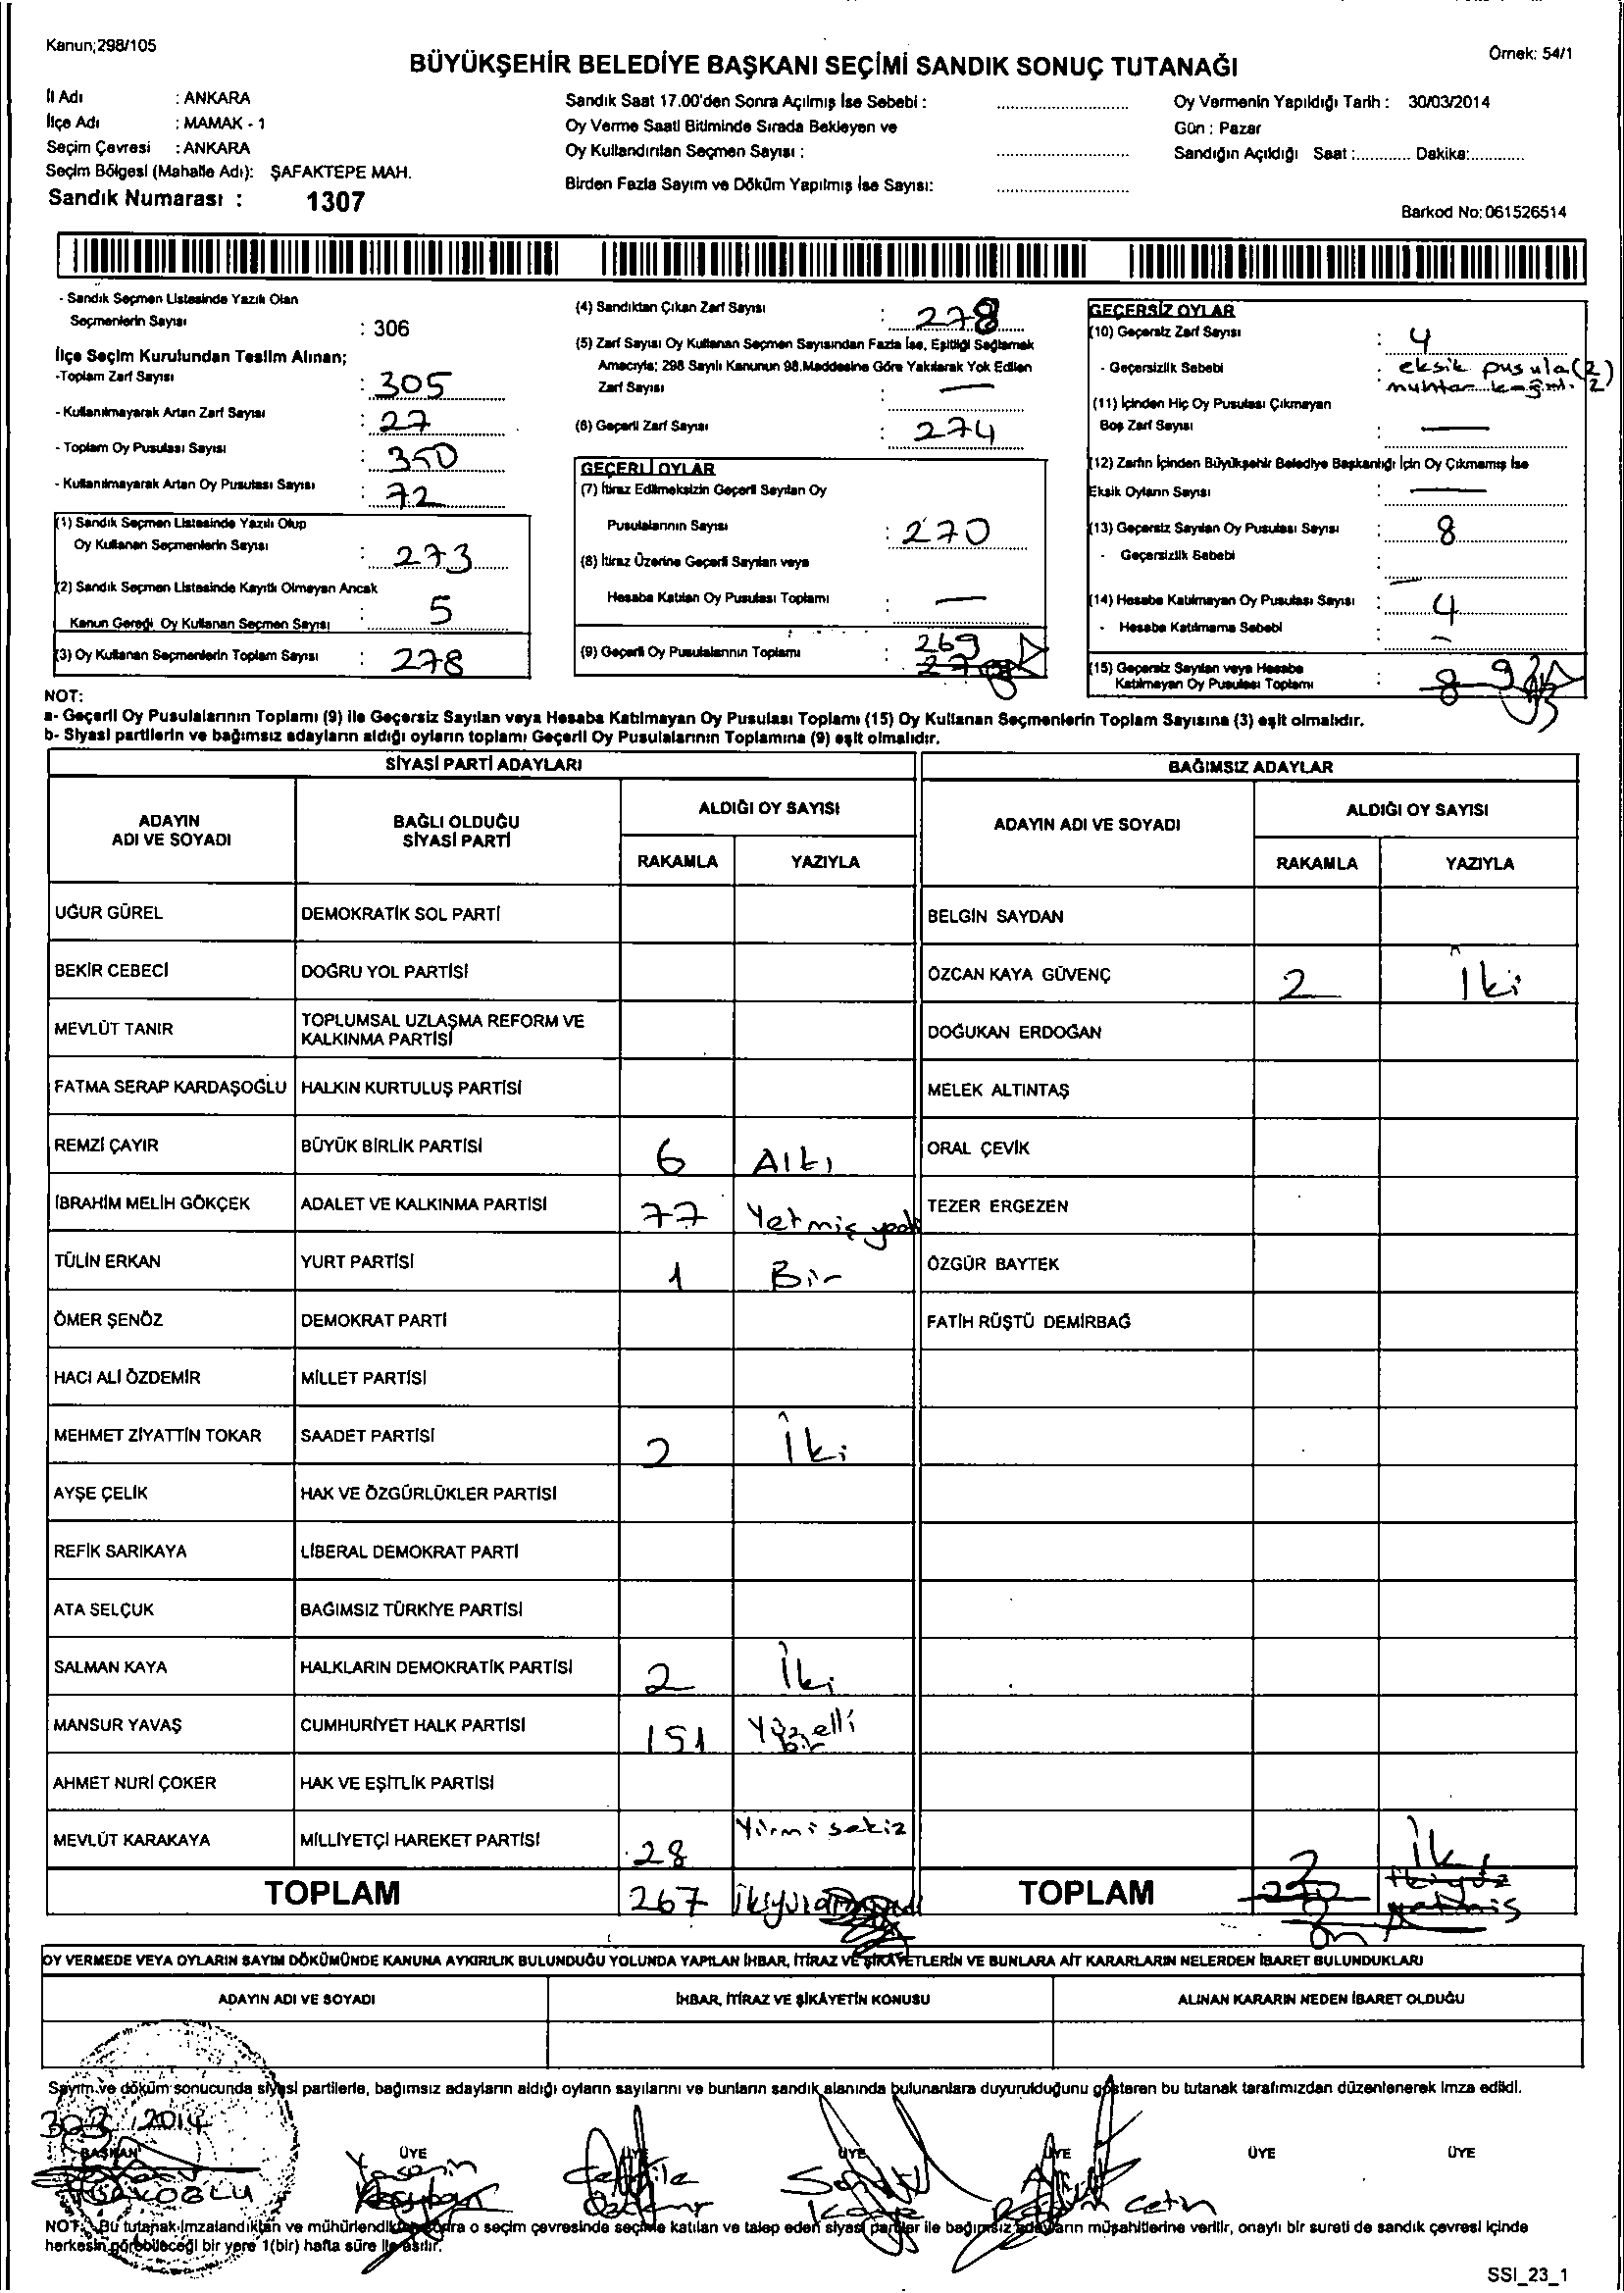 Kanun;298/105
Örnek: 54/1
BÜYÜKŞEHİR BELEDİYE BAŞKANI SEÇİMİ SANDIK SONUÇ TUTANAĞI
İl Adı : ANKARA
İlçe Adı : MAMAK - 1
Seçim Çevresi : ANKARA
Seçim Bölgesi (Mahalle Adı): ŞAFAKTEPE MAH.
Sandık Numarası : 1307
Sandık Saat 17.00'den Sonra Açılmış İse Sebebi :
Oy Verme Saati Bitiminde Sırada Bekleyen ve
Oy Kullandırılan Seçmen Sayısı :
Birden Fazla Sayım ve Döküm Yapılmış İse Sayısı:
Oy Vermenin Yapıldığı Tarih : 30/03/2014
Gün : Pazar
Sandığın Açıldığı Saat :............ Dakika:............
Barkod No: 061526514
- Sandık Seçmen Listesinde Yazılı Olan
Seçmenlerin Sayısı : 306
İlçe Seçim Kurulundan Teslim Alınan;
-Toplam Zarf Sayısı : 305
- Kullanılmayarak Artan Zarf Sayısı : 27
- Toplam Oy Pusulası Sayısı : 350
- Kullanılmayarak Artan Oy Pusulası Sayısı : 72
(1) Sandık Seçmen Listesinde Yazılı Olup
Oy Kullanan Seçmenlerin Sayısı : 273
(2) Sandık Seçmen Listesinde Kayıtlı Olmayan Ancak
Kanun Gereği Oy Kullanan Seçmen Sayısı : 5
(3) Oy Kullanan Seçmenlerin Toplam Sayısı : 278
(4) Sandıktan Çıkan Zarf Sayısı : 278
(5) Zarf Sayısı Oy Kullanan Seçmen Sayısından Fazla İse, Eşitliği Sağlamak
Amacıyla; 298 Sayılı Kanunun 98.Maddesine Göre Yakılarak Yok Edilen
Zarf Sayısı : —
(6) Geçerli Zarf Sayısı : 274
GEÇERLİ OYLAR
(7) İtiraz Edilmeksizin Geçerli Sayılan Oy
Pusulalarının Sayısı : 270
(8) İtiraz Üzerine Geçerli Sayılan veya
Hesaba Katılan Oy Pusulası Toplamı : —
(9) Geçerli Oy Pusulalarının Toplamı : 269
GEÇERSİZ OYLAR
(10) Geçersiz Zarf Sayısı : 4
- Geçersizlik Sebebi : eksik pusula (2)
muhtar kağıdı (2)
(11) İçinden Hiç Oy Pusulası Çıkmayan
Boş Zarf Sayısı : —
(12) Zarfın İçinden Büyükşehir Belediye Başkanlığı İçin Oy Çıkmamış İse
Eksik Oyların Sayısı : —
(13) Geçersiz Sayılan Oy Pusulası Sayısı : 8
- Geçersizlik Sebebi : —
(14) Hesaba Katılmayan Oy Pusulası Sayısı : 4
- Hesaba Katılmama Sebebi : —
(15) Geçersiz Sayılan veya Hesaba
Katılmayan Oy Pusulası Toplamı : 8 9
NOT:
a- Geçerli Oy Pusulalarının Toplamı (9) ile Geçersiz Sayılan veya Hesaba Katılmayan Oy Pusulası Toplamı (15) Oy Kullanan Seçmenlerin Toplam Sayısına (3) eşit olmalıdır.
b- Siyasi partilerin ve bağımsız adayların aldığı oyların toplamı Geçerli Oy Pusulalarının Toplamına (9) eşit olmalıdır.
SİYASİ PARTİ ADAYLARI
BAĞIMSIZ ADAYLAR
ADAYIN
ADI VE SOYADI
BAĞLI OLDUĞU
SİYASİ PARTİ
ALDIĞI OY SAYISI
RAKAMLA YAZIYLA
ADAYIN ADI VE SOYADI
ALDIĞI OY SAYISI
RAKAMLA YAZIYLA
UĞUR GÜREL DEMOKRATİK SOL PARTİ
BELGİN SAYDAN
BEKİR CEBECİ DOĞRU YOL PARTİSİ
ÖZCAN KAYA GÜVENÇ 2 İki
MEVLÜT TANIR TOPLUMSAL UZLAŞMA REFORM VE
KALKINMA PARTİSİ
DOĞUKAN ERDOĞAN
FATMA SERAP KARDAŞOĞLU HALKIN KURTULUŞ PARTİSİ
MELEK ALTINTAŞ
REMZİ ÇAYIR BÜYÜK BİRLİK PARTİSİ 6 Altı
ORAL ÇEVİK
İBRAHİM MELİH GÖKÇEK ADALET VE KALKINMA PARTİSİ 77 Yetmiş yedi
TEZER ERGEZEN
TÜLİN ERKAN YURT PARTİSİ 1 Bir
ÖZGÜR BAYTEK
ÖMER ŞENÖZ DEMOKRAT PARTİ
FATİH RÜŞTÜ DEMİRBAĞ
HACI ALİ ÖZDEMİR MİLLET PARTİSİ
MEHMET ZİYATTİN TOKAR SAADET PARTİSİ 2 İki
AYŞE ÇELİK HAK VE ÖZGÜRLÜKLER PARTİSİ
REFİK SARIKAYA LİBERAL DEMOKRAT PARTİ
ATA SELÇUK BAĞIMSIZ TÜRKİYE PARTİSİ
SALMAN KAYA HALKLARIN DEMOKRATİK PARTİSİ 2 İki
MANSUR YAVAŞ CUMHURİYET HALK PARTİSİ 151 Yüzelli bir
AHMET NURİ ÇOKER HAK VE EŞİTLİK PARTİSİ
MEVLÜT KARAKAYA MİLLİYETÇİ HAREKET PARTİSİ 28 Yirmi sekiz
TOPLAM 267
TOPLAM 2 İki
270 ikiyüz
yetmiş
OY VERMEDE VEYA OYLARIN SAYIM DÖKÜMÜNDE KANUNA AYKIRILIK BULUNDUĞU YOLUNDA YAPILAN İHBAR, İTİRAZ VE ŞİKAYETLERİN VE BUNLARA AİT KARARLARIN NELERDEN İBARET BULUNDUKLARI
ADAYIN ADI VE SOYADI
İHBAR, İTİRAZ VE ŞİKÂYETİN KONUSU
ALINAN KARARIN NEDEN İBARET OLDUĞU
Sayım ve döküm sonucunda siyasi partilerle, bağımsız adayların aldığı oyların sayılarını ve bunların sandık alanında bulunanlara duyurulduğunu gösteren bu tutanak tarafımızdan düzenlenerek imza edildi.
2014
BAŞKAN ÜYE ÜYE ÜYE ÜYE ÜYE ÜYE
Yasemin
Kaya
Çetin
NOT: Bu tutanak imzalandıktan ve mühürlendikten sonra o seçim çevresinde seçime katılan ve talep eden siyasi partiler ile bağımsız adayların müşahitlerine verilir, onaylı bir sureti de sandık çevresi içinde
herkesin görebileceği bir yere 1(bir) hafta süre ile asılır.
SSI_23_1